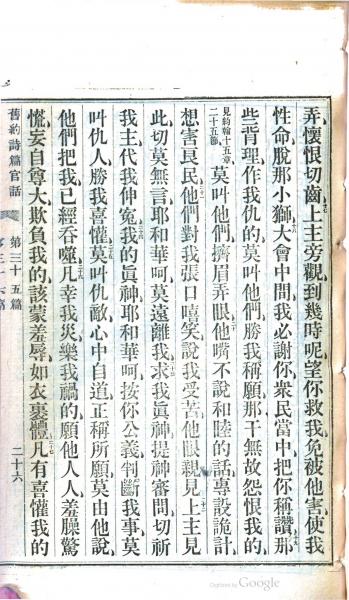 弄懷恨切齒上主旁觀到幾時呢望你救我免被他害使我
性命脫那小獅大會中間我必謝你衆民當中把你稱讚那
些背理作我仇的莫叫他們勝我稱願那干無故怨恨我的
見約翰十五章二十五節 莫叫他們擠眉弄眼他嘴不說和睦的話專設詭計
想害良民他們對我張口嘻笑說我受害他眼親見上主見
此切莫無言耶和華呵莫遠離我求我眞神提神審問切祈
我主代我伸冤我的眞神耶和華呵按你公義判斷我事莫
叫仇人勝我喜懽莫叫仇敵心中自道正稱所願莫由他說
他們把我已經吞噬凡幸我災樂我禍的願他人人羞臊驚
慌妄自尊大欺負我的該蒙羞辱如衣裹體凡有喜懽我的
舊約詩篇官話 第三十五篇 二十六
Digitized by Google